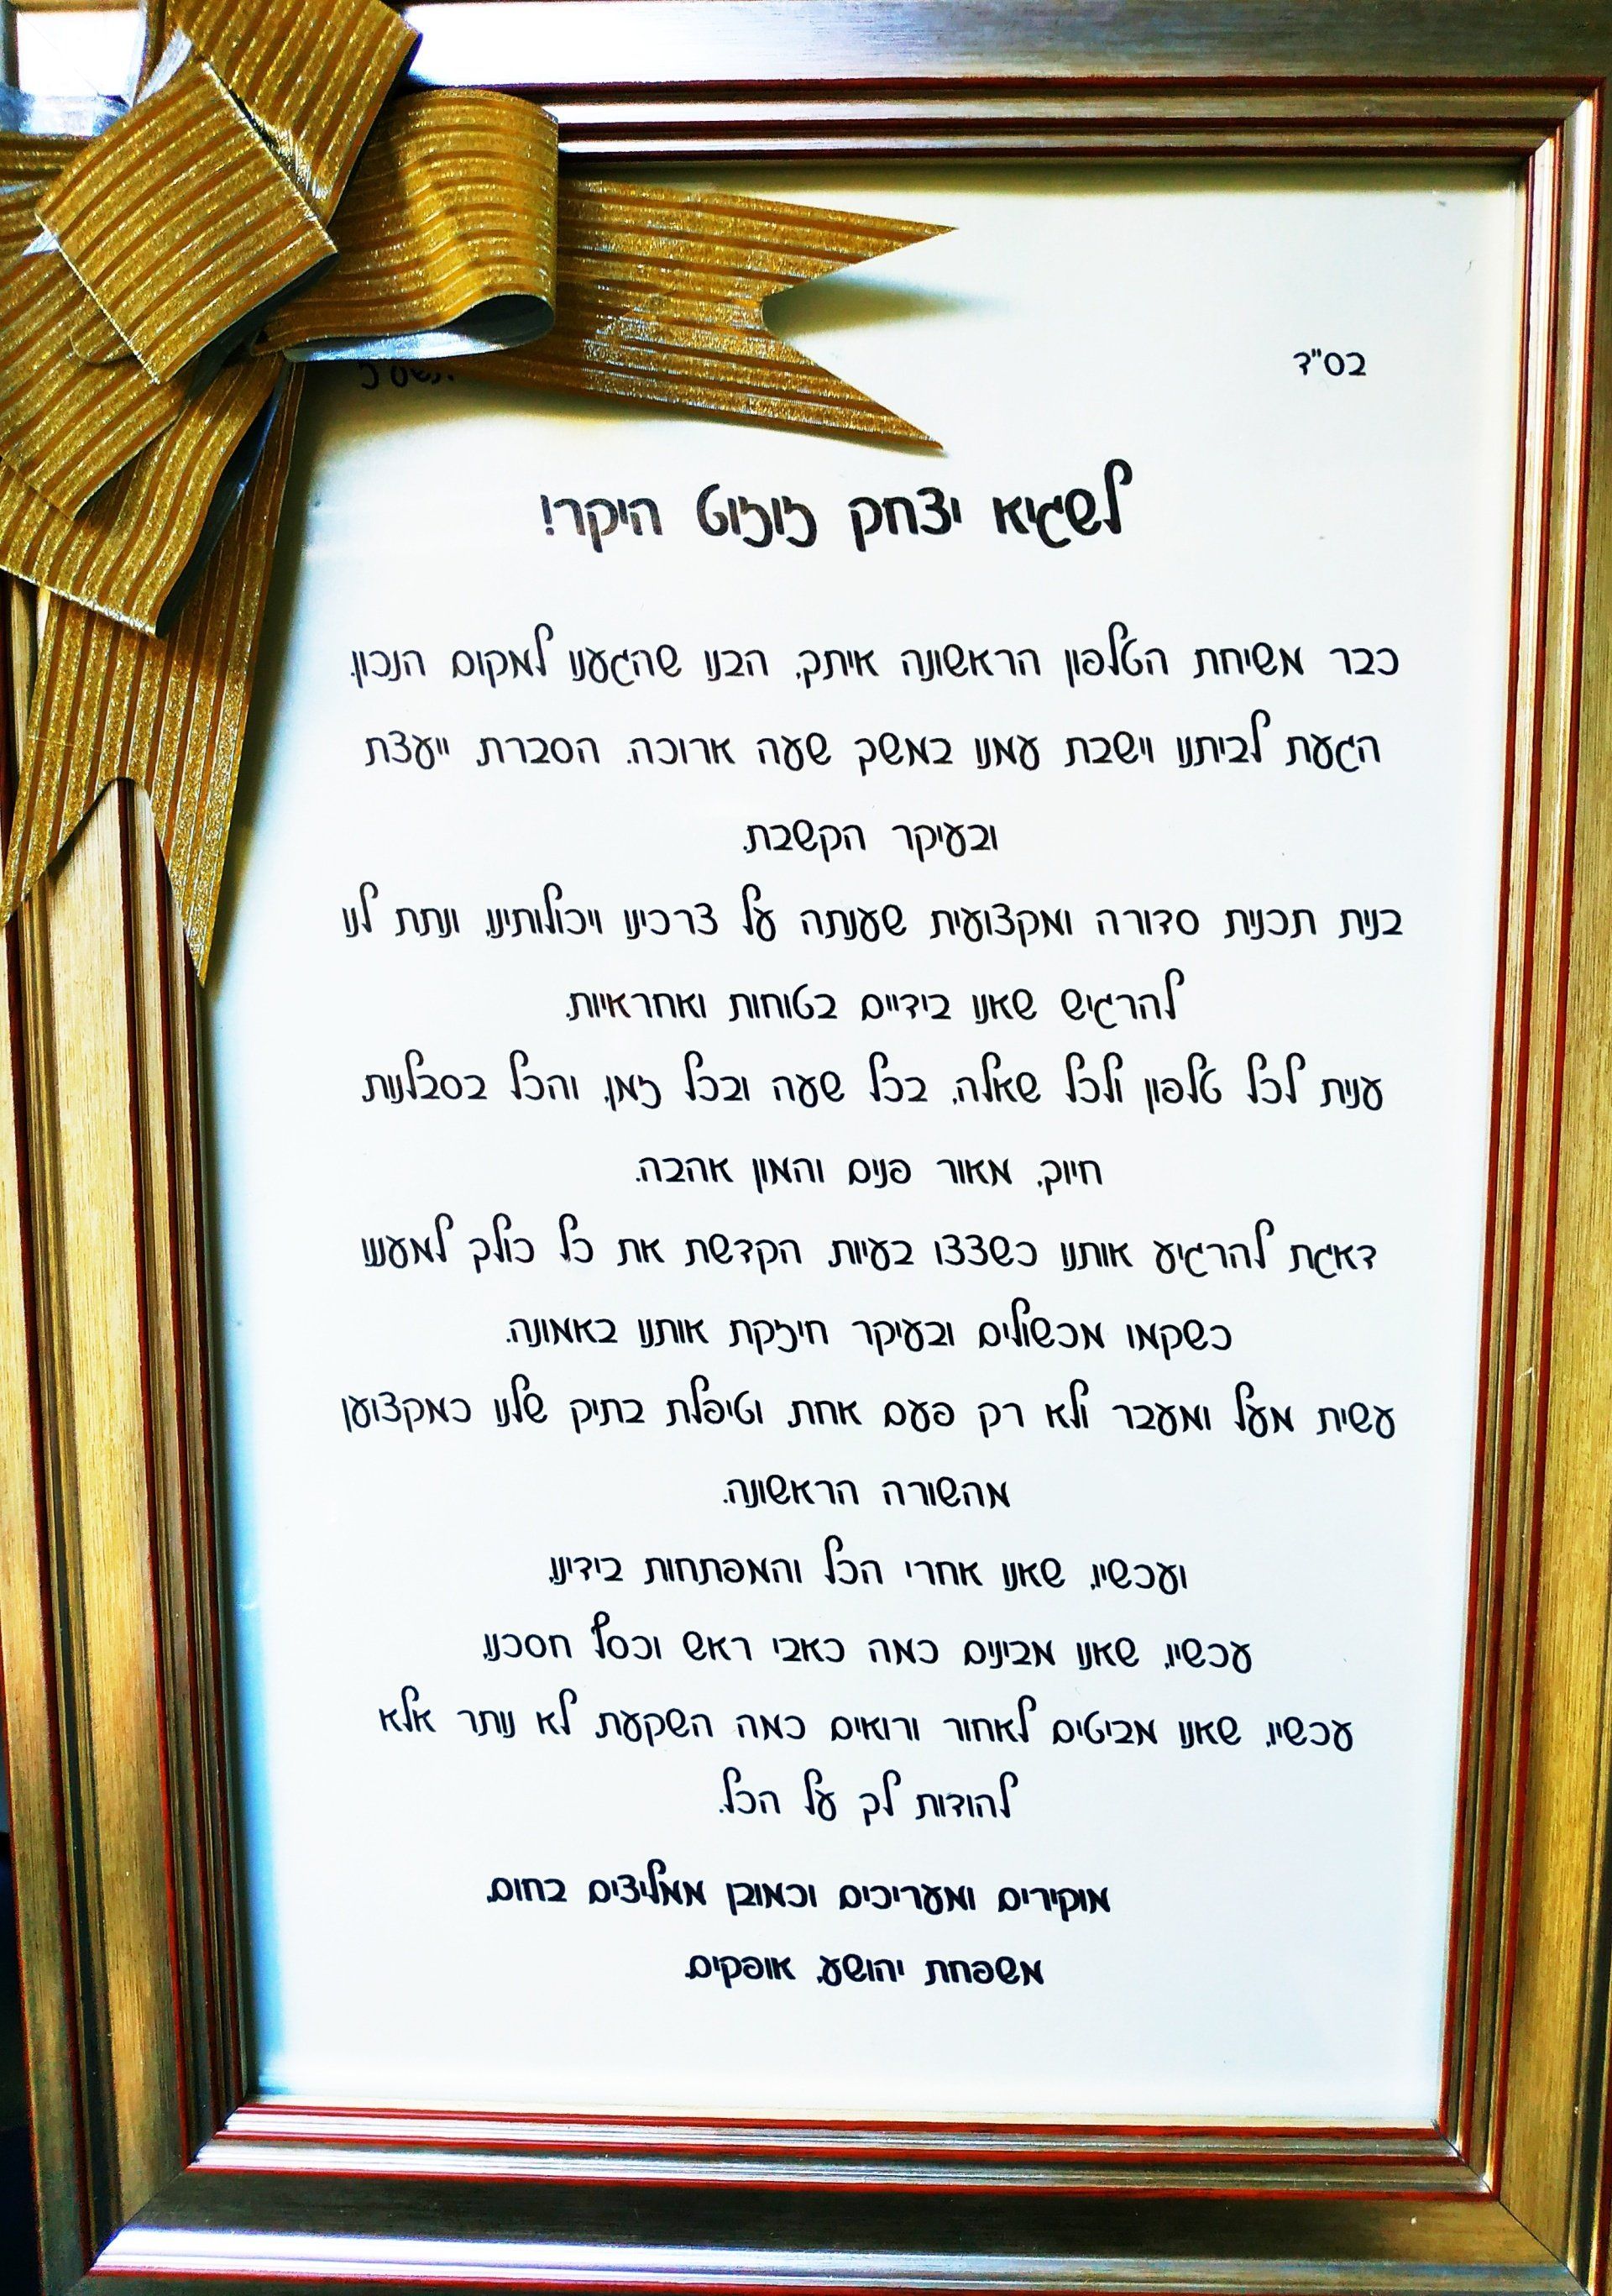 בס"ד
לשגיא יצחק זוזוט היקר!
כבר משיחת הטלפון הראשונה איתך, הבנו שהגענו למקום הנכון.
הגעת לביתנו וישבת עמנו במשך שעה ארוכה. הסברת, ייעצת
ובעיקר הקשבת.
בנית תכנית סדורה ומקצועית שענתה על צרכינו ויכולותינו, ונתת לנו
להרגיש שאנו בידיים בטוחות ואחראיות.
ענית לכל טלפון ולכל שאלה, בכל שעה ובכל זמן, והכל בסבלנות
חיוך, מאור פנים והמון אהבה.
דאגת להרגיע אותנו כשצצו בעיות הקדשת את כל כולך למעננו
כשקמו מכשולים ובעיקר חיזקת אותנו באמונה.
עשית מעל ומעבר ולא רק פעם אחת וטיפלת בתיק שלנו כמקצוען
מהשורה הראשונה.
ועכשיו, שאנו אחרי הכל והמפתחות בידינו,
עכשיו, שאנו מבינים כמה כאבי ראש וכסף חסכנו,
עכשיו, שאנו מביטים לאחור ורואים כמה השקעת לא נותר אלא
להודות לך על הכל.
מוקירים ומעריכים וכמובן ממליצים בחום,
משפחת יהושע, אופקים.